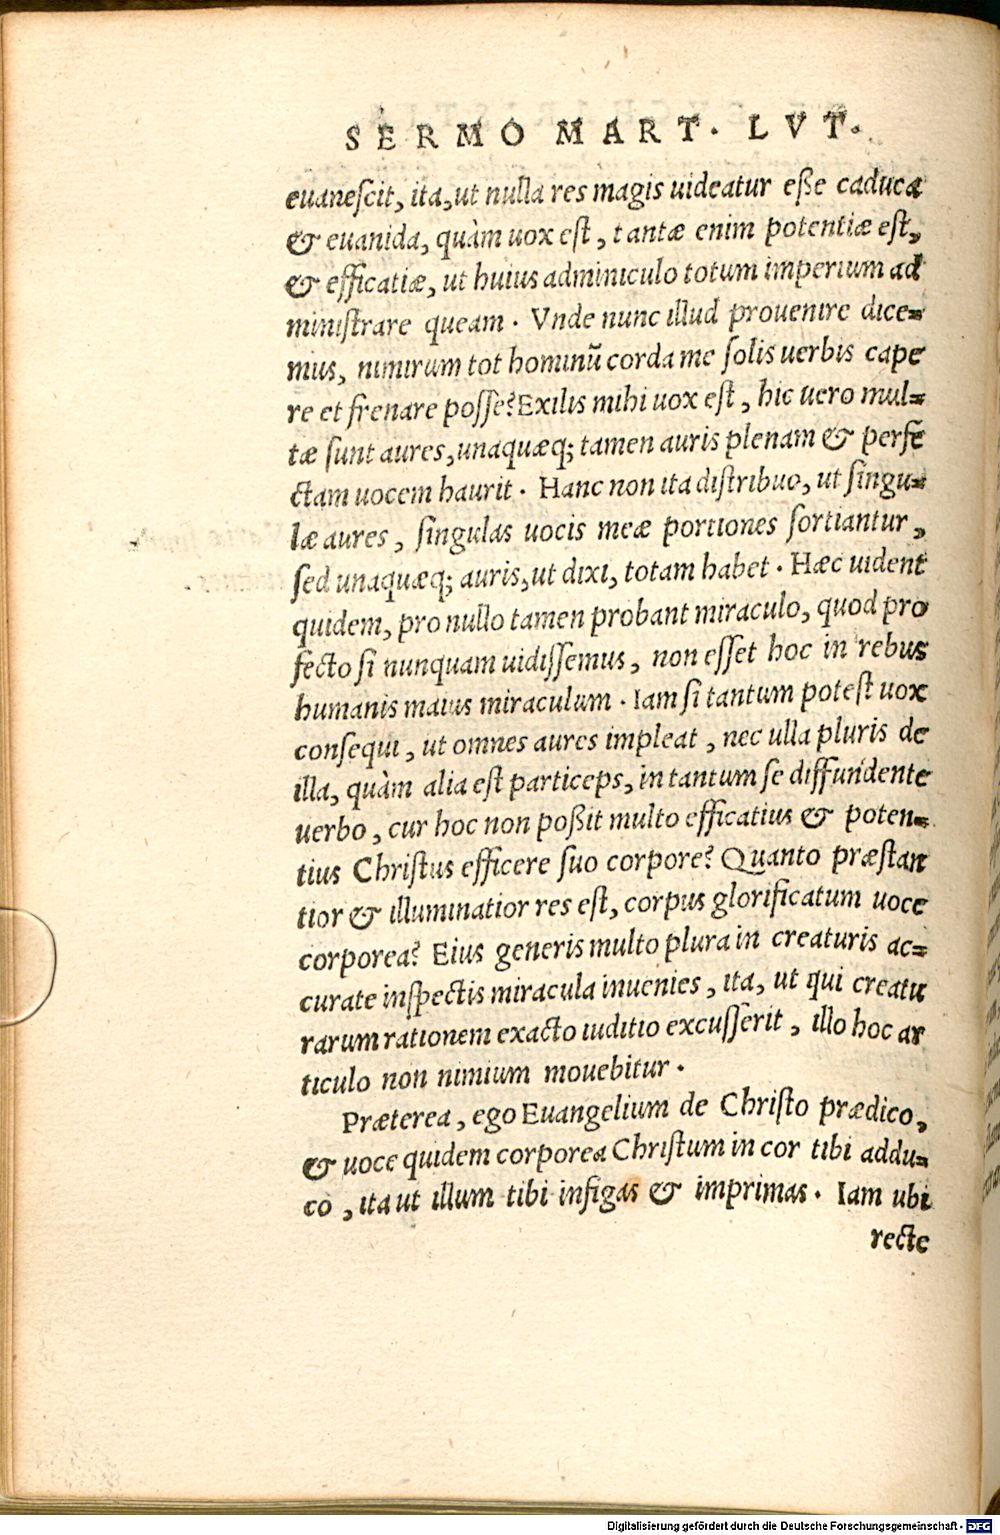 SERMO MART. LVT.
euaneſcit, ita, ut nulla res magis uideatur eße caduca
& euanida, quàm uox eſt, tantæ enim potentiæ eſt,
& efficatiæ, ut huius adminiculo totum imperium ad
miniſtrare queam. Vnde nunc illud prouenire dice=
mus, nimirum tot hominũ corda me ſolis uerbis cape
re et frenare poſſe? Exilis mihi uox eſt, hic uero mul=
tæ ſunt aures, unaquæq; tamen auris plenam & perfe
ctam uocem haurit. Hanc non ita diſtribuo, ut ſingu=
læ aures, ſingulas uocis meæ portiones ſortiantur,
ſed unaquæq; auris, ut dixi, totam habet. Hæc uident
quidem, pro nullo tamen probant miraculo, quod pro
fecto ſi nunquam uidiſſemus, non eſſet hoc in rebus
humanis maius miraculum. Iam ſi tantum poteſt uox
conſequi, ut omnes aures impleat, nec ulla pluris de
illa, quàm alia eſt particeps, in tantum ſe diffundente
uerbo, cur hoc non poßit multo efficatius & poten=
tius Chriſtus efficere ſuo corpore? Quanto præſtan
tior & illuminatior res eſt, corpus glorificatum uoce
corporea? Eius generis multo plura in creaturis ac=
curate inſpectis miracula inuenies, ita, ut qui creatu
rarum rationem exacto iuditio excuſſerit, illo hoc ar
ticulo non nimium mouebitur.
Præterea, ego Euangelium de Chriſto prædico,
& uoce quidem corporea Chriſtum in cor tibi addu=
co, ita ut illum tibi infigas & imprimas. Iam ubi
recte
Digitalisierung gefördert durch die Deutsche Forschungsgemeinschaft - DFG